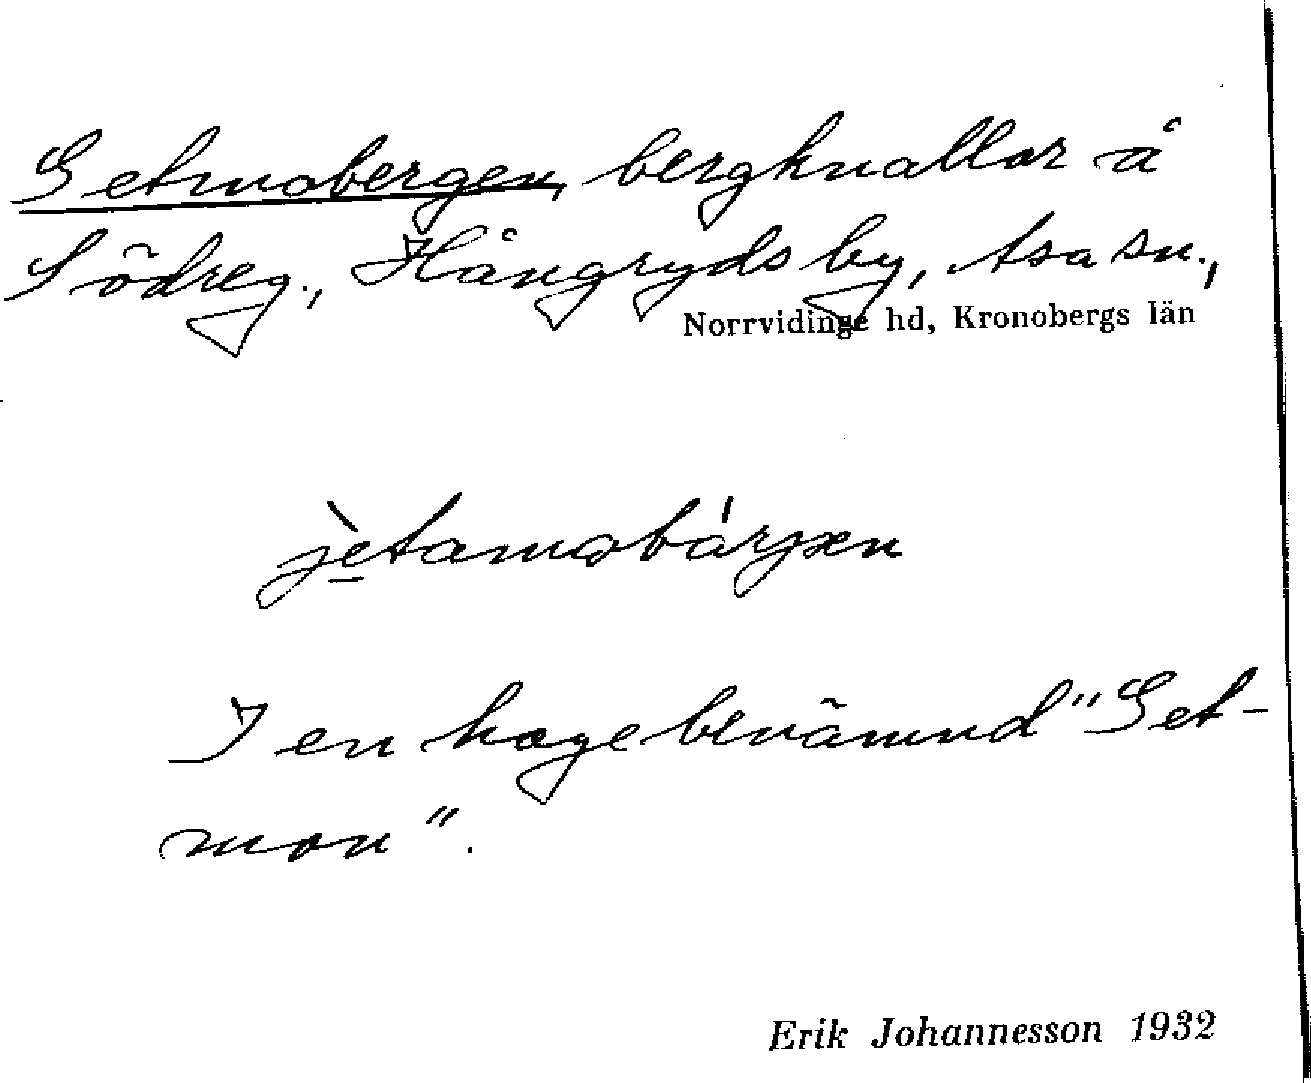 Getmobergen, bergknallar å
Södreg., Hångryds by, Asa sn.,
Norrvidinge hd, Kronobergs län
jètamobárjen
I en hage benämnd "Get-
mon".
Erik Johannesson 1932